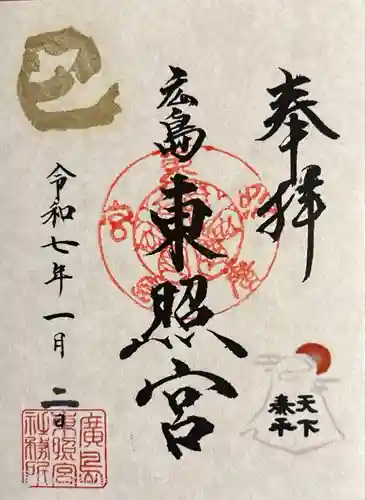 奉拝
天下
泰平
広島東照宮
巳
令和七年一月二日
廣島
東照宮
社務所